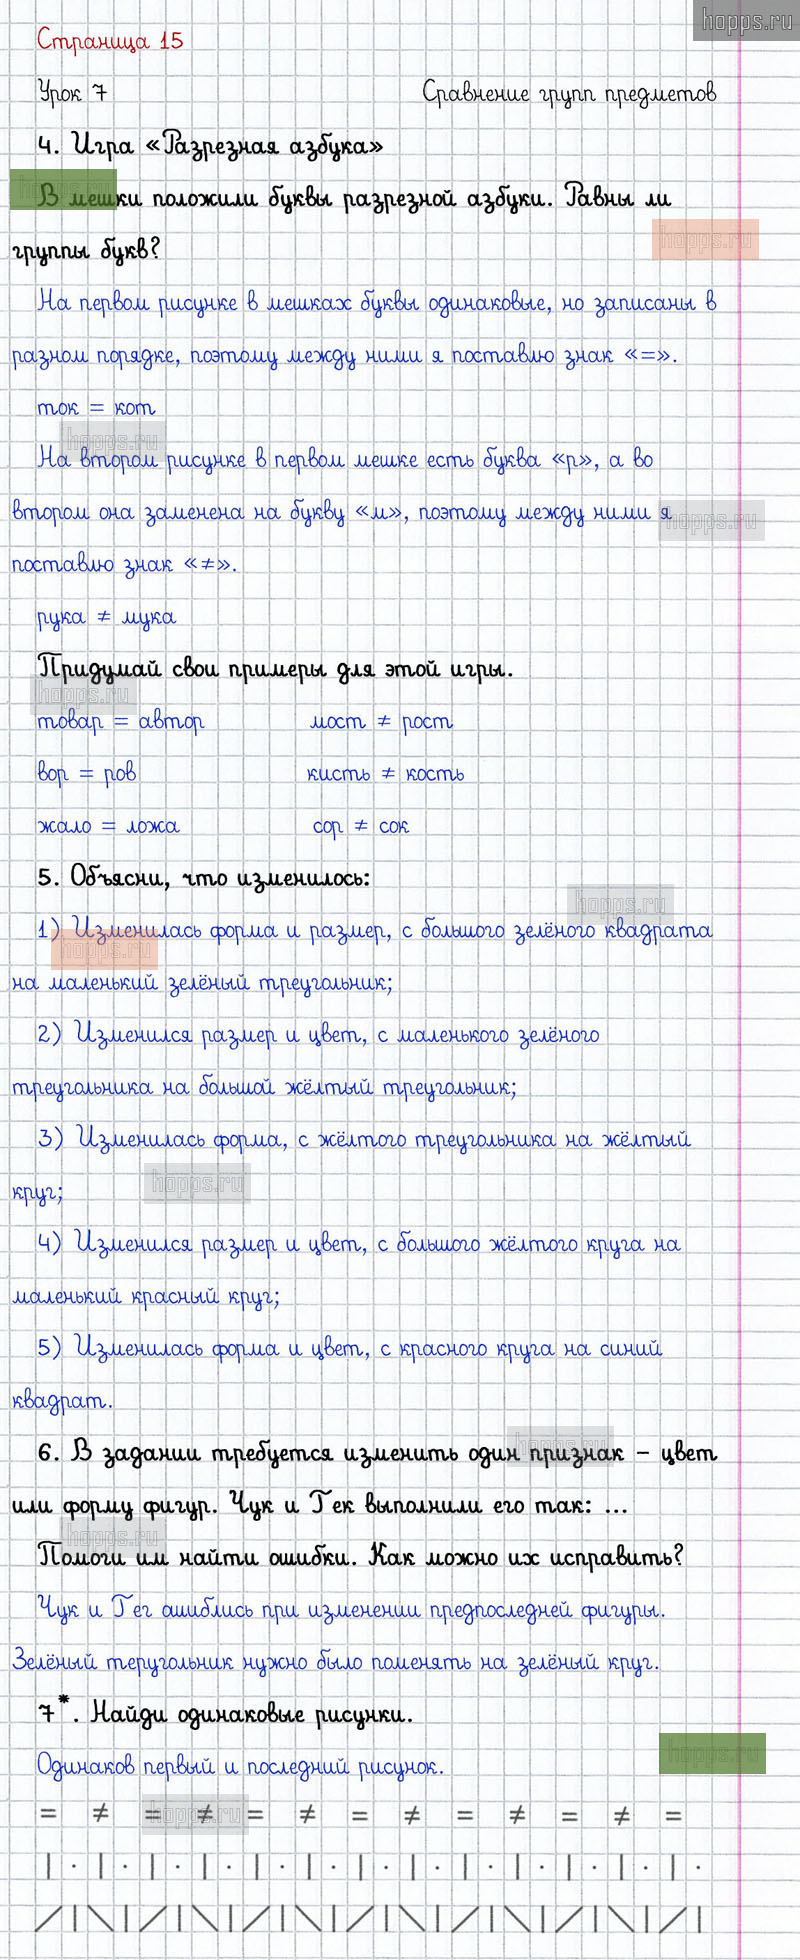 hopps.ru
Страница 15
Урок 7 Сравнение групп предметов
4. Игра «Разрезная азбука»
В мешки положили буквы разрезной азбуки. Равны ли
hopps.ru
hopps.ru
группы букв?
На первом рисунке в мешках буквы одинаковые, но записаны в
разном порядке, поэтому между ними я поставлю знак «=».
ток = кот
hopps.ru
На втором рисунке в первом мешке есть буква «р», а во
втором она заменена на букву «м», поэтому между ними я
hopps.ru
поставлю знак «≠».
рука ≠ мука
Придумай свои примеры для этой игры.
hopps.ru
товар = автор мост ≠ рост
вор = ров кисть ≠ кость
жало = ложа сор ≠ сок
5. Объясни, что изменилось:
hopps.ru
1) Изменилась форма и размер, с большого зелёного квадрата
hopps.ru
на маленький зелёный треугольник;
2) Изменился размер и цвет, с маленького зелёного
треугольника на большой жёлтый треугольник;
3) Изменилась форма, с жёлтого треугольника на жёлтый
hopps.ru
круг;
4) Изменился размер и цвет, с большого жёлтого круга на
маленький красный круг;
5) Изменилась форма и цвет, с красного круга на синий
квадрат.
6. В задании требуется изменить один признак – цвет
hopps.ru
или форму фигур. Чук и Гек выполнили его так: ...
hopps.ru
Помоги им найти ошибки. Как можно их исправить?
Чук и Гег ашиблись при изменении предпоследней фигуры.
Зелёный теругольник нужно было поменять на зелёный круг.
7*. Найди одинаковые рисунки.
hopps.ru
Одинаков первый и последний рисунок.
= ≠ = ≠ = ≠ = ≠ = ≠ = ≠ =
hopps.ru
| · | · | · | · | · | · | · | · | · | · | · | · | ·
/ | \ | / | \ | / | \ | / | \ | / | \ | / | \ | / |